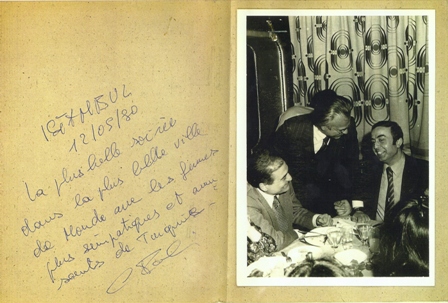 ISTAMBUL
12/05/80
La plus belle soirée
dans la plus belle ville
de Monde avec les femmes
plus simpatiques et amu
sants de Turquie